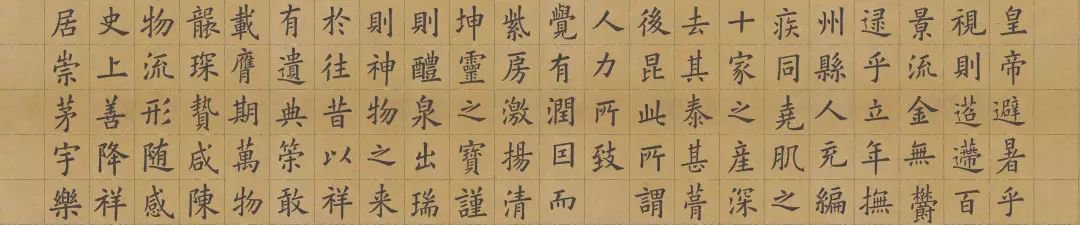 皇帝避暑乎
視則迢遰百
景流金無欝
逮乎立年撫
州縣人充編
疾同堯肌之
十家之産深
去其泰甚葺
後昆此所謂
人力所致
覺有潤囙而
紫房激揚清
坤靈之寶謹
則醴泉出瑞
則神物之来
於往昔以祥
有遺典策敢
載膺期萬物
琛贄咸陳
物流形随感
史上善降祥
居崇茅宇樂